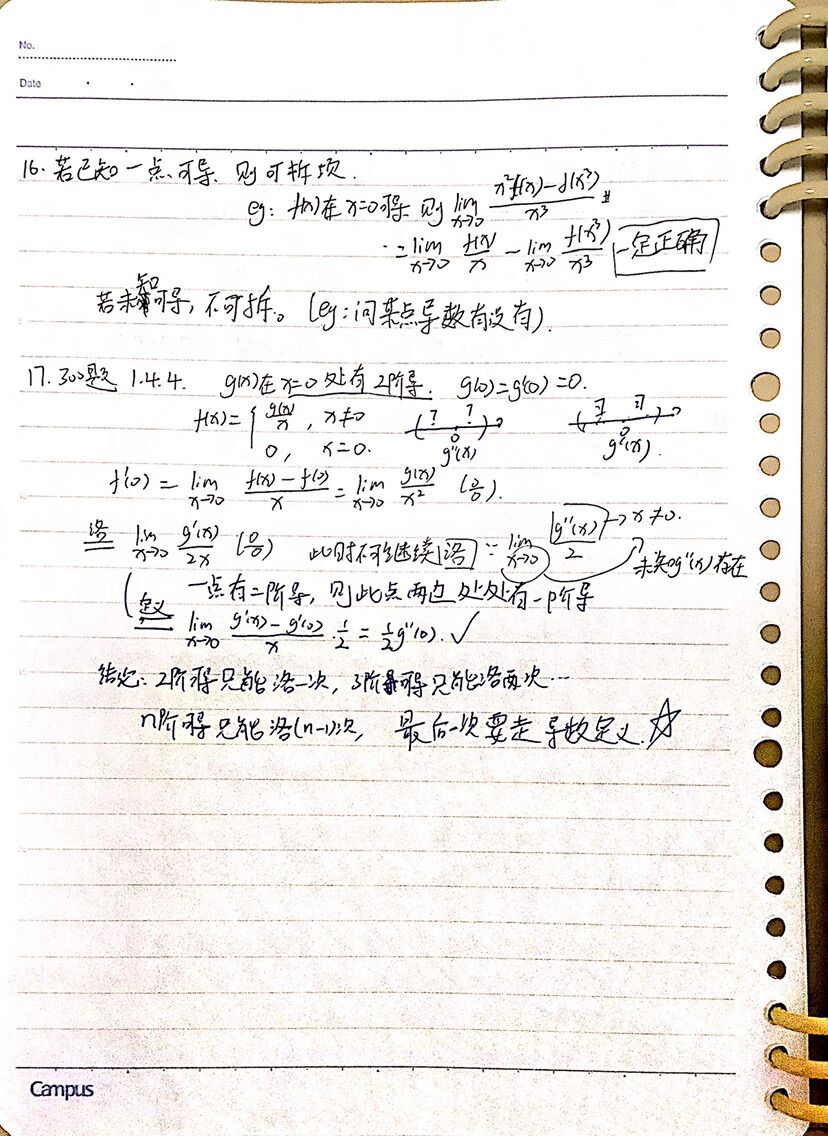 No.
Date
16. 若已知一点可导, 则可拆项.
eg: f(x)在x=0可导 则 lim x→0 (x²f(x)-f(x³))/x³
= lim x→0 f(x)/x - lim x→0 f(x³)/x³ 一定正确
若未知可导, 不可拆。(eg: 问某点导数有没有).
17. 300题 1.4.4. g(x)在x=0处有2阶导. g(0)=g'(0)=0.
f(x)= { g(x)/x , x≠0 ? ? 0 g''(x) ∃ ∃ 0 g'(x).
0, x=0.
f'(0) = lim x→0 (f(x)-f(0))/x = lim x→0 g(x)/x² (0/0).
洛 lim x→0 g'(x)/2x (0/0) 此时不能继续洛 ∵ lim x→0 g''(x)/2 → x≠0. 未知g''(x)存在
一点有二阶导, 则此点两边处处有一阶导
定义 lim x→0 (g'(x)-g'(0))/x · 1/2 = 1/2 g''(0). ✓
结论: 2阶可导只能洛一次, 3阶可导只能洛两次…
n阶可导只能洛(n-1)次, 最后一次要走导数定义. ☆
Campus